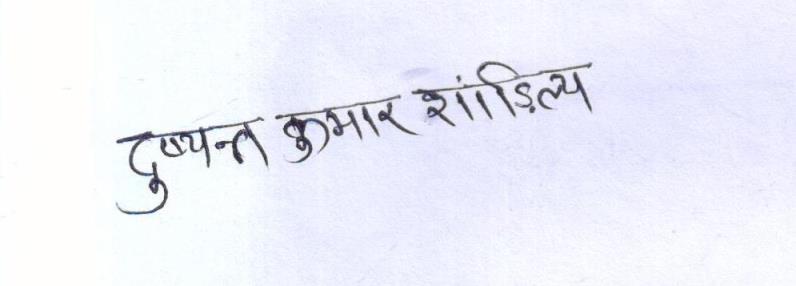 दुष्यन्त कुमार शांडिल्य